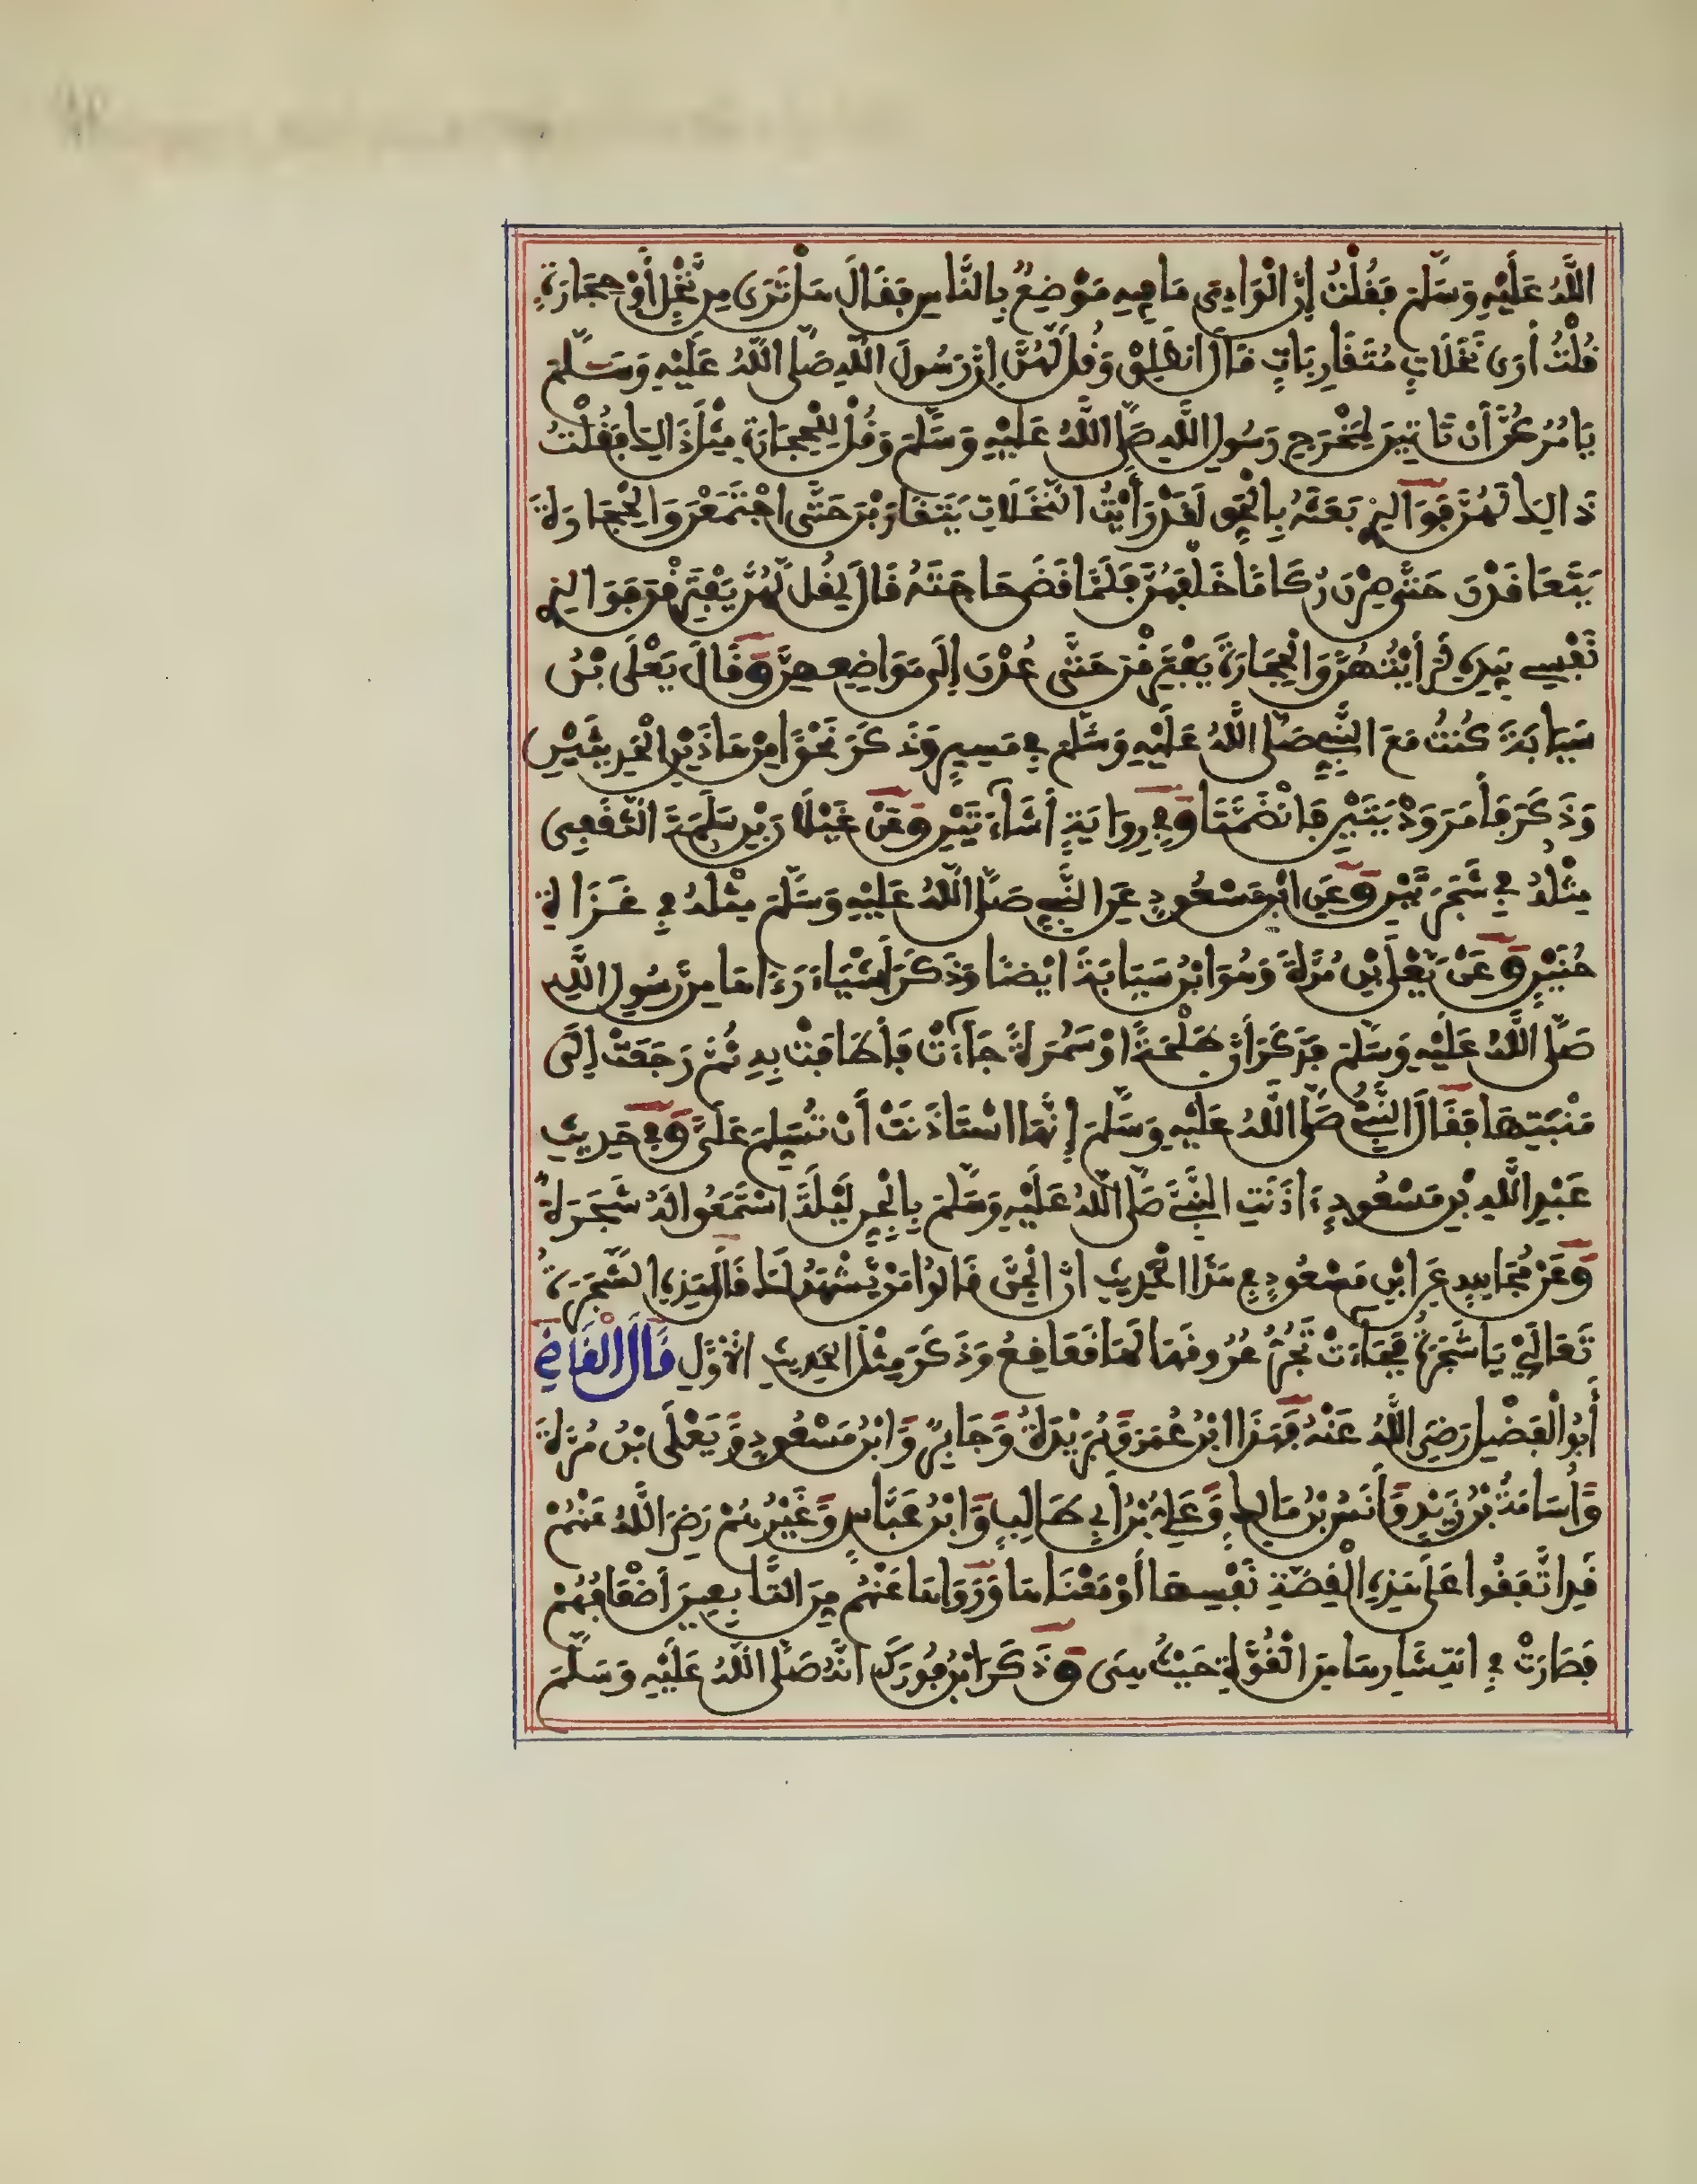 اللَّهُ عَلَيْهِ وَسَلَّمَ فَقُلْتُ إِنَّ الْوَادِيَ مَا فِيهِ مَوْضِعٌ بِالنَّاسِ فَقَالَ هَلْ تَرَى مِن نَّخْلٍ أَوْ حِجَارَةٍ
قُلْتُ أَرَى نَخَلَاتٍ مُتَقَارِبَاتٍ قَالَ انطَلِقْ وَقُل لَّهُنَّ إِنَّ رَسُولَ اللَّهِ صَلَّى اللَّهُ عَلَيْهِ وَسَلَّمَ
يَامُرُكُنَّ أَن تَاتِينَ لِمَخْرَجِ رَسُولِ اللَّهِ صَلَّى اللَّهُ عَلَيْهِ وَسَلَّمَ وَقُلْ لِلْحِجَارَةِ مِثْلَ ذَالِكَ فَقُلْتُ
ذَالِكَ لَهُنَّ فَوَالَّذِي بَعَثَهُ بِالْحَقِّ لَقَدْ رَأَيْتُ النَّخَلَاتِ يَتَقَارَبْنَ حَتَّى اجْتَمَعْنَ وَالْحِجَارَةَ
يَتَعَاقَدْنَ حَتَّى صِرْنَ رُكَامًا خَلْفَهُنَّ فَلَمَّا قَضَى حَاجَتَهُ قَالَ لِي قُل لَّهُنَّ يَفْتَرِقْنَ فَوَالَّذِي
نَفْسِي بِيَدِهِ لَرَأَيْتُهُنَّ وَالْحِجَارَةَ يَفْتَرِقْنَ حَتَّى عُدْنَ إِلَى مَوَاضِعِهِنَّ وَقَالَ يَعْلَى بْنُ
سَيَابَةَ كُنتُ مَعَ النَّبِيِّ صَلَّى اللَّهُ عَلَيْهِ وَسَلَّمَ فِي مَسِيرٍ وَذَكَرَ نَحْوًا مِنْ هَاذَيْنِ الْحَدِيثَيْنِ
وَذَكَرَ فَأَمَرَ وَدْيَتَيْنِ فَانْضَمَّتَا وَفِي رِوَايَةٍ أَشَاءَتَيْنِ وَعَنْ غَيْلَانَ بْنِ سَلَمَةَ الثَّقَفِيِّ
مِثْلُهُ فِي شَجَرَتَيْنِ وَعَنِ ابْنِ مَسْعُودٍ عَنِ النَّبِيِّ صَلَّى اللَّهُ عَلَيْهِ وَسَلَّمَ مِثْلُهُ فِي غَزَاةِ
حُنَيْنٍ وَعَنْ يَعْلَى بْنِ مُرَّةَ وَهُوَ ابْنُ سَيَابَةَ ايْضًا وَذَكَرَ أَشْيَاءَ رَءَاهَا مِن رَّسُولِ اللَّهِ
صَلَّى اللَّهُ عَلَيْهِ وَسَلَّمَ فَذَكَرَ أَنَّ طَلْحَةً اوْ سَمُرَةً جَاءَتْ فَأَطَافَتْ بِهِ ثُمَّ رَجَعَتْ إِلَى
مَنْبَتِهَا فَقَالَ النَّبِيُّ صَلَّى اللَّهُ عَلَيْهِ وَسَلَّمَ إِنَّهَا اسْتَاذَنَتْ أَن تُسَلِّمَ عَلَيَّ وَفِي حَدِيثِ
عَبْدِ اللَّهِ بْنِ مَسْعُودٍ ءَاذَنَتِ النَّبِيَّ صَلَّى اللَّهُ عَلَيْهِ وَسَلَّمَ بِالْجِنِّ لَيْلَةَ اسْتَمَعُوا لَهُ شَجَرَةٌ
وَعَنْ مُجَاهِدٍ عَنِ ابْنِ مَسْعُودٍ فِي هَذَا الْحَدِيثِ انَّ الْجِنَّ قَالُوا مَنْ يَّشْهَدُ لَكَ قَالَ هَذِهِ الشَّجَرَةُ
تَعَالَيْ يَا شَجَرَةُ فَجَاءَتْ تَجُرُّ عُرُوقَهَا لَهَا قَعَاقِعُ وَذَكَرَ مِثْلَ الْحَدِيثِ الْأَوَّلِ قَالَ الْقَاضِي
أَبُو الْفَضْلِ رَضِيَ اللَّهُ عَنْهُ فَهَذَا ابْنُ عُمَرَ وَبُرَيْدَةُ وَجَابِرٌ وَابْنُ مَسْعُودٍ وَيَعْلَى بْنُ مُرَّةَ
وَأُسَامَةُ بْنُ زَيْدٍ وَأَنَسُ بْنُ مَالِكٍ وَعَلِيُّ بْنُ أَبِي طَالِبٍ وَابْنُ عَبَّاسٍ وَغَيْرُهُمْ رَضِيَ اللَّهُ عَنْهُمْ
قَدِ اتَّفَقُوا عَلَى هَذِهِ الْقِصَّةِ نَفْسِهَا أَوْ مَعْنَاهَا وَرَوَاهَا عَنْهُمْ مِنَ التَّابِعِينَ أَضْعَافُهُمْ
فَصَارَتْ فِي انتِشَارِهَا مِنَ الْقُوَّةِ حَيْثُ هِيَ وَذَكَرَ ابْنُ فُورَكٍ انَّهُ صَلَّى اللَّهُ عَلَيْهِ وَسَلَّمَ